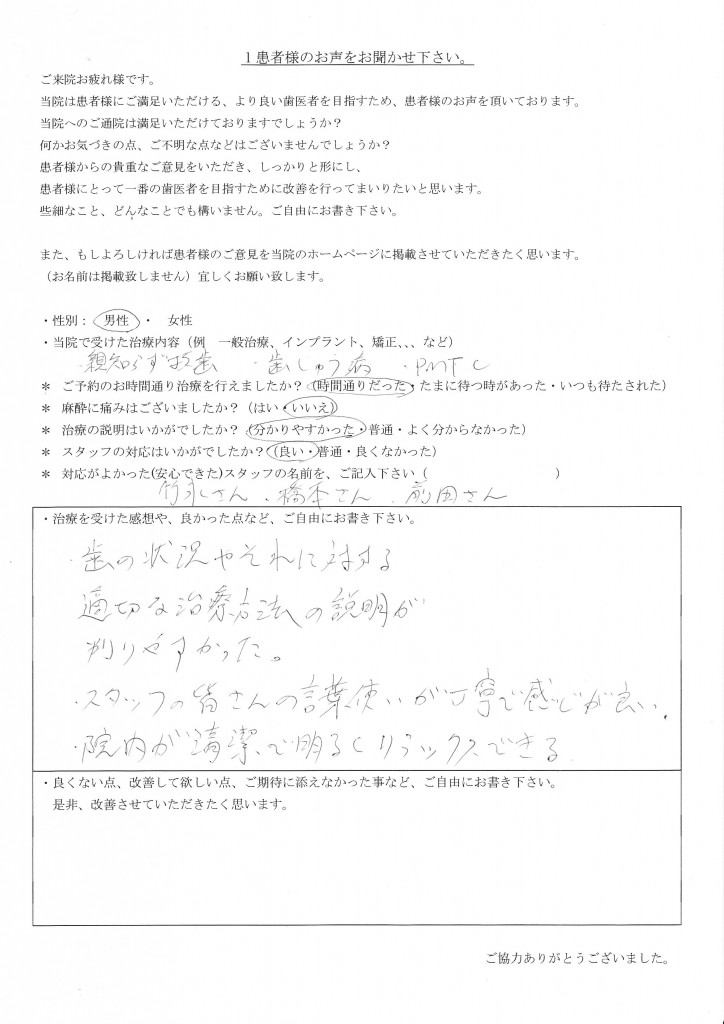 １患者様のお声をお聞かせ下さい。
ご来院お疲れ様です。
当院は患者様にご満足いただける、より良い歯医者を目指すため、患者様のお声を頂いております。
当院へのご通院は満足いただけておりますでしょうか？
何かお気づきの点、ご不明な点などはございませんでしょうか？
患者様からの貴重なご意見をいただき、しっかりと形にし、
患者様にとって一番の歯医者を目指すために改善を行ってまいりたいと思います。
些細なこと、どんなことでも構いません。ご自由にお書き下さい。
また、もしよろしければ患者様のご意見を当院のホームページに掲載させていただきたく思います。
（お名前は掲載致しません）宜しくお願い致します。
・性別：　男性　・　女性
・当院で受けた治療内容（例　一般治療、インプラント、矯正、、、など）
・親知らず抜歯　・歯しゅう病　・PMTC
＊　ご予約のお時間通り治療を行えましたか？（時間通りだった・たまに待つ時があった・いつも待たされた）
＊　麻酔に痛みはございましたか？（はい・いいえ）
＊　治療の説明はいかがでしたか？（分かりやすかった・普通・よく分からなかった）
＊　スタッフの対応はいかがでしたか？（良い・普通・良くなかった）
＊　対応がよかった(安心できた)スタッフの名前を、ご記入下さい（　　　　　　　　）
竹永さん、橋本さん、前田さん
・治療を受けた感想や、良かった点など、ご自由にお書き下さい。
・歯の状況やそれに対する
適切な治療方法の説明が
判りやすかった。
・スタッフの皆さんの言葉使いが丁寧で感じが良い.
・院内が清潔で明るくリラックスできる
・良くない点、改善して欲しい点、ご期待に添えなかった事など、ご自由にお書き下さい。
是非、改善させていただきたく思います。
ご協力ありがとうございました。